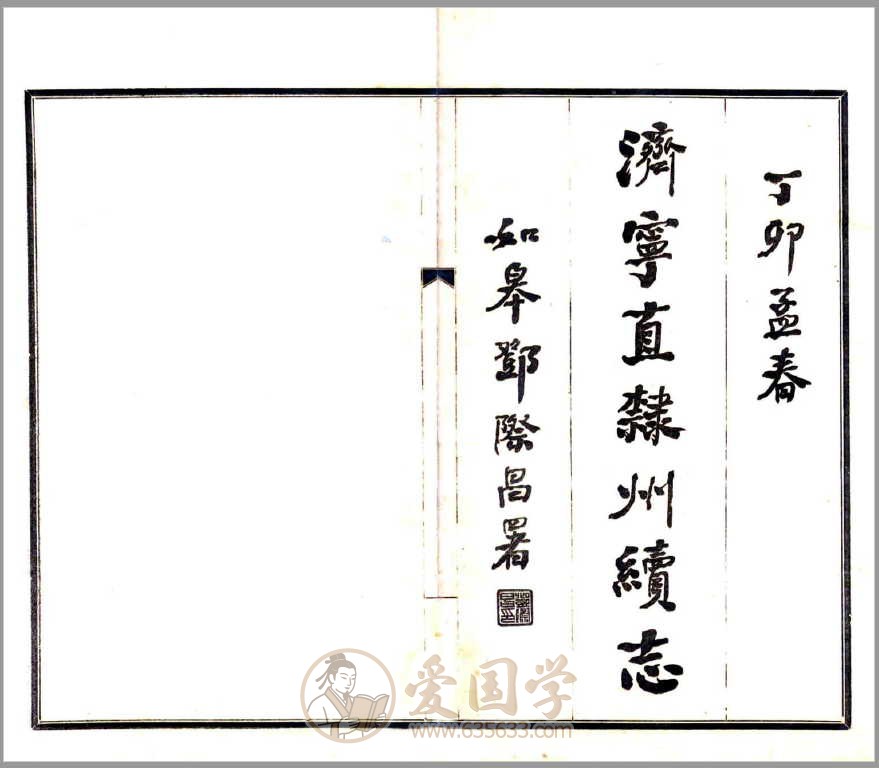 丁卯孟春
濟寧直隸州續志
如皋鄧際昌署
爱国学
www.635633.com